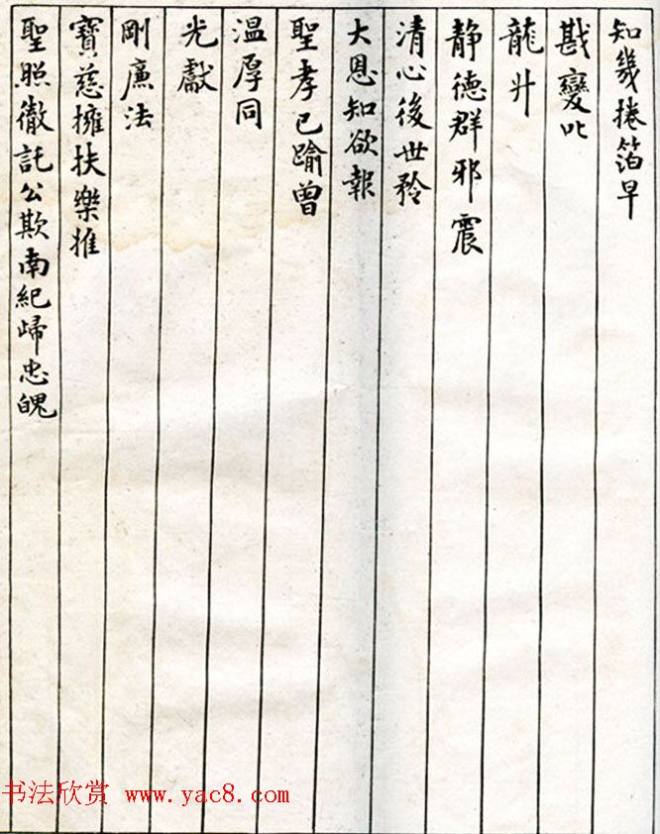 知幾捲箔早
戡變叱
龍升
静德群邪震
清心後世矜
大恩知欲報
聖孝已踰曾
温厚同
光獻
剛廉法
寶慈擁扶樂推
聖照徹託公欺南紀歸忠魄
书法欣赏 www.yac8.com